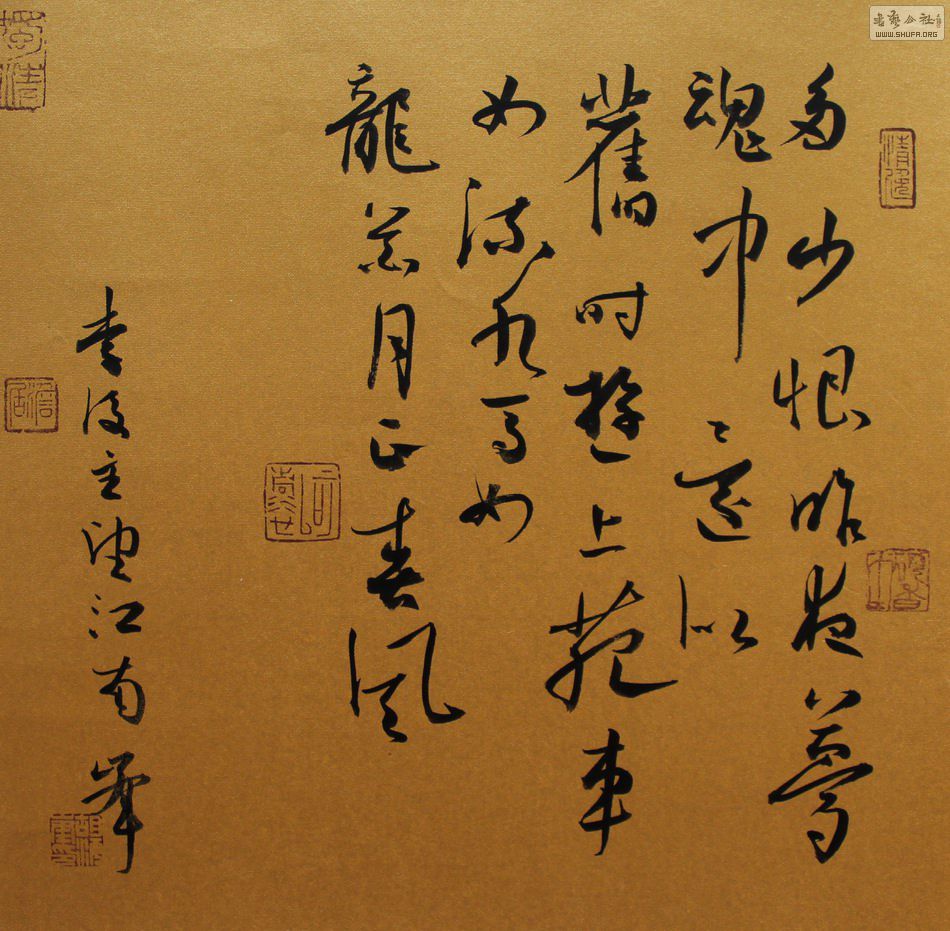 多少恨昨夜夢
魂中還似
舊時遊上苑車
如流水馬如
龍花月正春風
李後主望江南
書藝公社
WWW.SHUFA.ORG